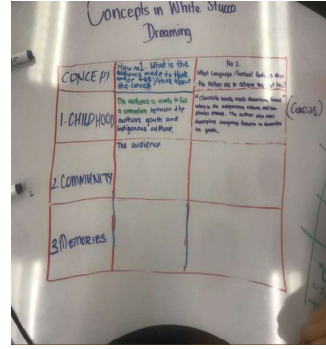 Concepts in White Stucco
Dreaming
CONCEPT
How no1. What is the
audience made to think
under feel/think about
the concept
No 2.
What Language/textual features does
the author use to achieve
1. CHILDHOOD
The audience is made to feel
a connection between the
authors youth and
indigenous culture.
"Chocolate hands made
relating to the indigenous culture, and how
The author also uses
descriptive language features to describe
his youth.
(ideas)
The audience
2. COMMUNITY
3 MEMORIES